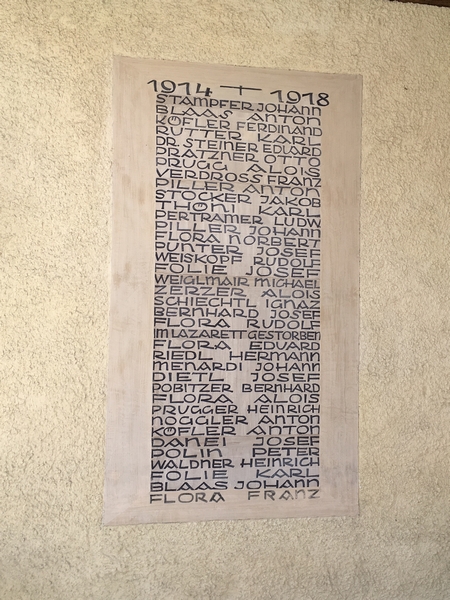 1914 † 1918
STAMPFER JOHANN
BLAAS ANTON
KÖFLER FERDINAND
RUTTER KARL
DR. STEINER EDUARD
PRATZNER OTTO
PRUGG ALOIS
VERDROSS FRANZ
PILLER ANTON
STOCKER JAKOB
THÖNI KARL
PERTRAMER LUDW
PILLER JOHANN
FLORA NORBERT
PUNTER JOSEF
WEISKOPF RUDOLF
FOLIE JOSEF
WEIGLMAIR MICHAEL
ZERZER ALOIS
SCHIECHTL IGNAZ
BERNHARD JOSEF
FLORA RUDOLF
IM LAZARETT GESTORBEN
FLORA EDUARD
RIEDL HERMANN
MENARDI JOHANN
DIETL JOSEF
POBITZER BERNHARD
FLORA ALOIS
PRUGGER HEINRICH
NOGGLER ANTON
KÖFLER ANTON
DANEI JOSEF
POLIN PETER
WALDNER HEINRICH
FOLIE KARL
BLAAS JOHANN
FLORA FRANZ